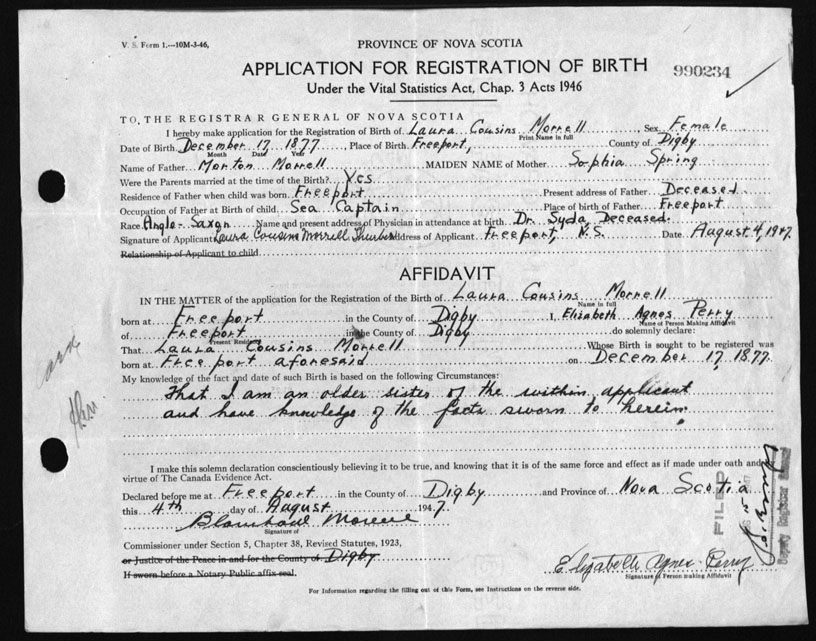 V. S. Form 1.—10M-3-46,
PROVINCE OF NOVA SCOTIA
APPLICATION FOR REGISTRATION OF BIRTH
990234
Under the Vital Statistics Act, Chap. 3 Acts 1946
TO, THE REGISTRAR GENERAL OF NOVA SCOTIA
I hereby make application for the Registration of Birth of Laura Cousins Morrell, Sex Female
Print Name in full
Date of Birth December 17 1877, Place of Birth Freeport, County of Digby
Month Date Year
Name of Father Morton Morrell MAIDEN NAME of Mother Sophia Spring
Were the Parents married at the time of the Birth? Yes
Residence of Father when child was born Freeport Present address of Father Deceased
Occupation of Father at Birth of child Sea Captain Place of birth of Father Freeport
Race Anglo-Saxon Name and present address of Physician in attendance at birth Dr. Syda Deceased.
Signature of Applicant Laura Cousins Morrell Thurber Address of Applicant Freeport, N.S. Date August 4, 1947.
Relationship of Applicant to child
AFFIDAVIT
IN THE MATTER of the application for the Registration of the Birth of Laura Cousins Morrell
Name in full
born at Freeport in the County of Digby I, Elizabeth Agnes Perry
Name of Person Making Affidavit
of Freeport in the County of Digby do solemnly declare:
Present Residence
That Laura Cousins Morrell Whose Birth is sought to be registered was
born at Freeport aforesaid on December 17, 1877.
My knowledge of the fact and date of such Birth is based on the following Circumstances:
That I am an older sister of the within applicant
and have knowledge of the facts sworn to herein.
I make this solemn declaration conscientiously believing it to be true, and knowing that it is of the same force and effect as if made under oath and
virtue of The Canada Evidence Act.
Declared before me at Freeport in the County of Digby and Province of Nova Scotia
this 4th day of August 1947.
Signature of
Commissioner under Section 5, Chapter 38, Revised Statutes, 1923,
or Justice of the Peace in and for the County of Digby
If sworn before a Notary Public affix seal.
Elizabeth Agnes Perry
Signature of Person making Affidavit
For Information regarding the filling out of this Form, see Instructions on the reverse side.
FILED
Deputy Registrar